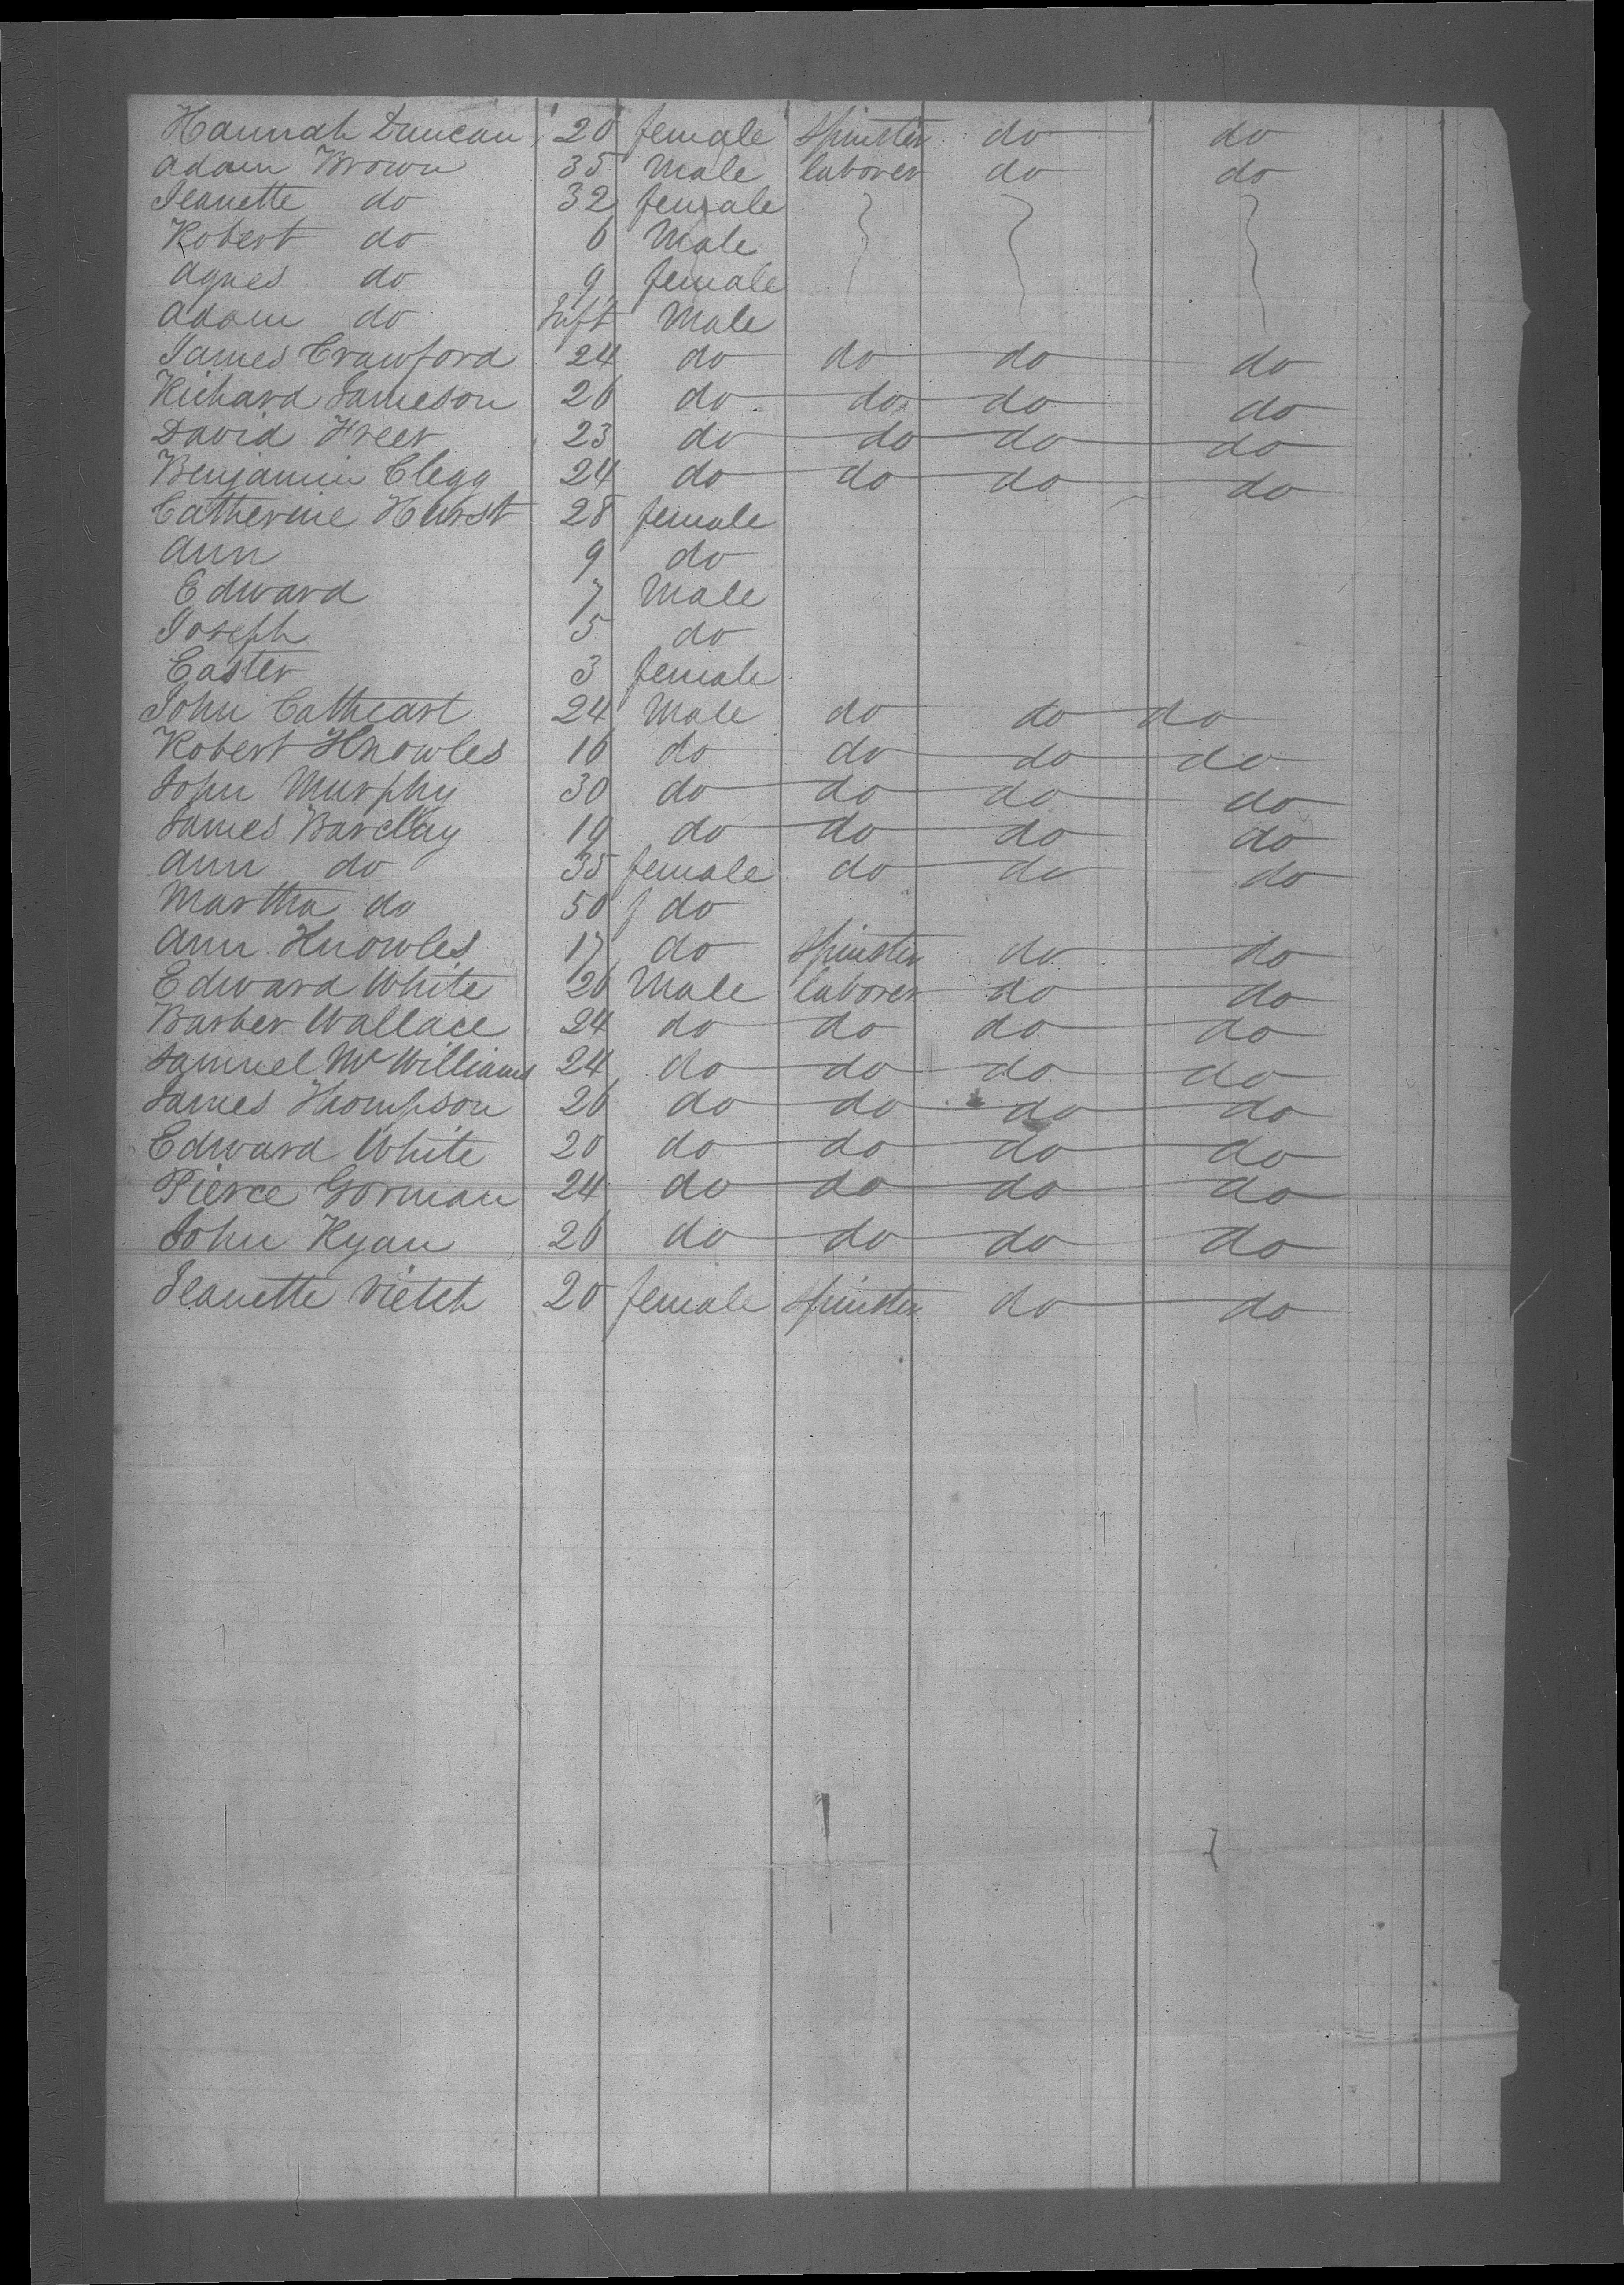 Hannah Duncan 20 female Spinster do do
Adam Brown 35 Male laborer do do
Jeanette do 32 female
Robert do 6 Male
Agnes do 9 female
Adam do Inft Male
James Crawford 24 do do do do
Richard Jameson 26 do do do do
David Freer 23 do do do do
Benjamin Clegg 24 do do do do
Catherine Hurst 28 female
Ann 9 do
Edward 7 Male
Joseph 5 do
Easter 3 female
John Cathcart 24 Male do do do
Robert Knowles 16 do do do do
John Murphy 30 do do do do
James Barclay 19 do do do do
Ann do 35 female do do do
Martha do 50 f do
Ann Knowles 17 do Spinster do do
Edward White 26 Male laborer do do
Barber Wallace 24 do do do do
Samuel McWilliams 24 do do do do
James Thompson 26 do do do do
Edward White 20 do do do do
Pierce Gorman 24 do do do do
John Ryan 26 do do do do
Jeanette Vietch 20 female Spinster do do